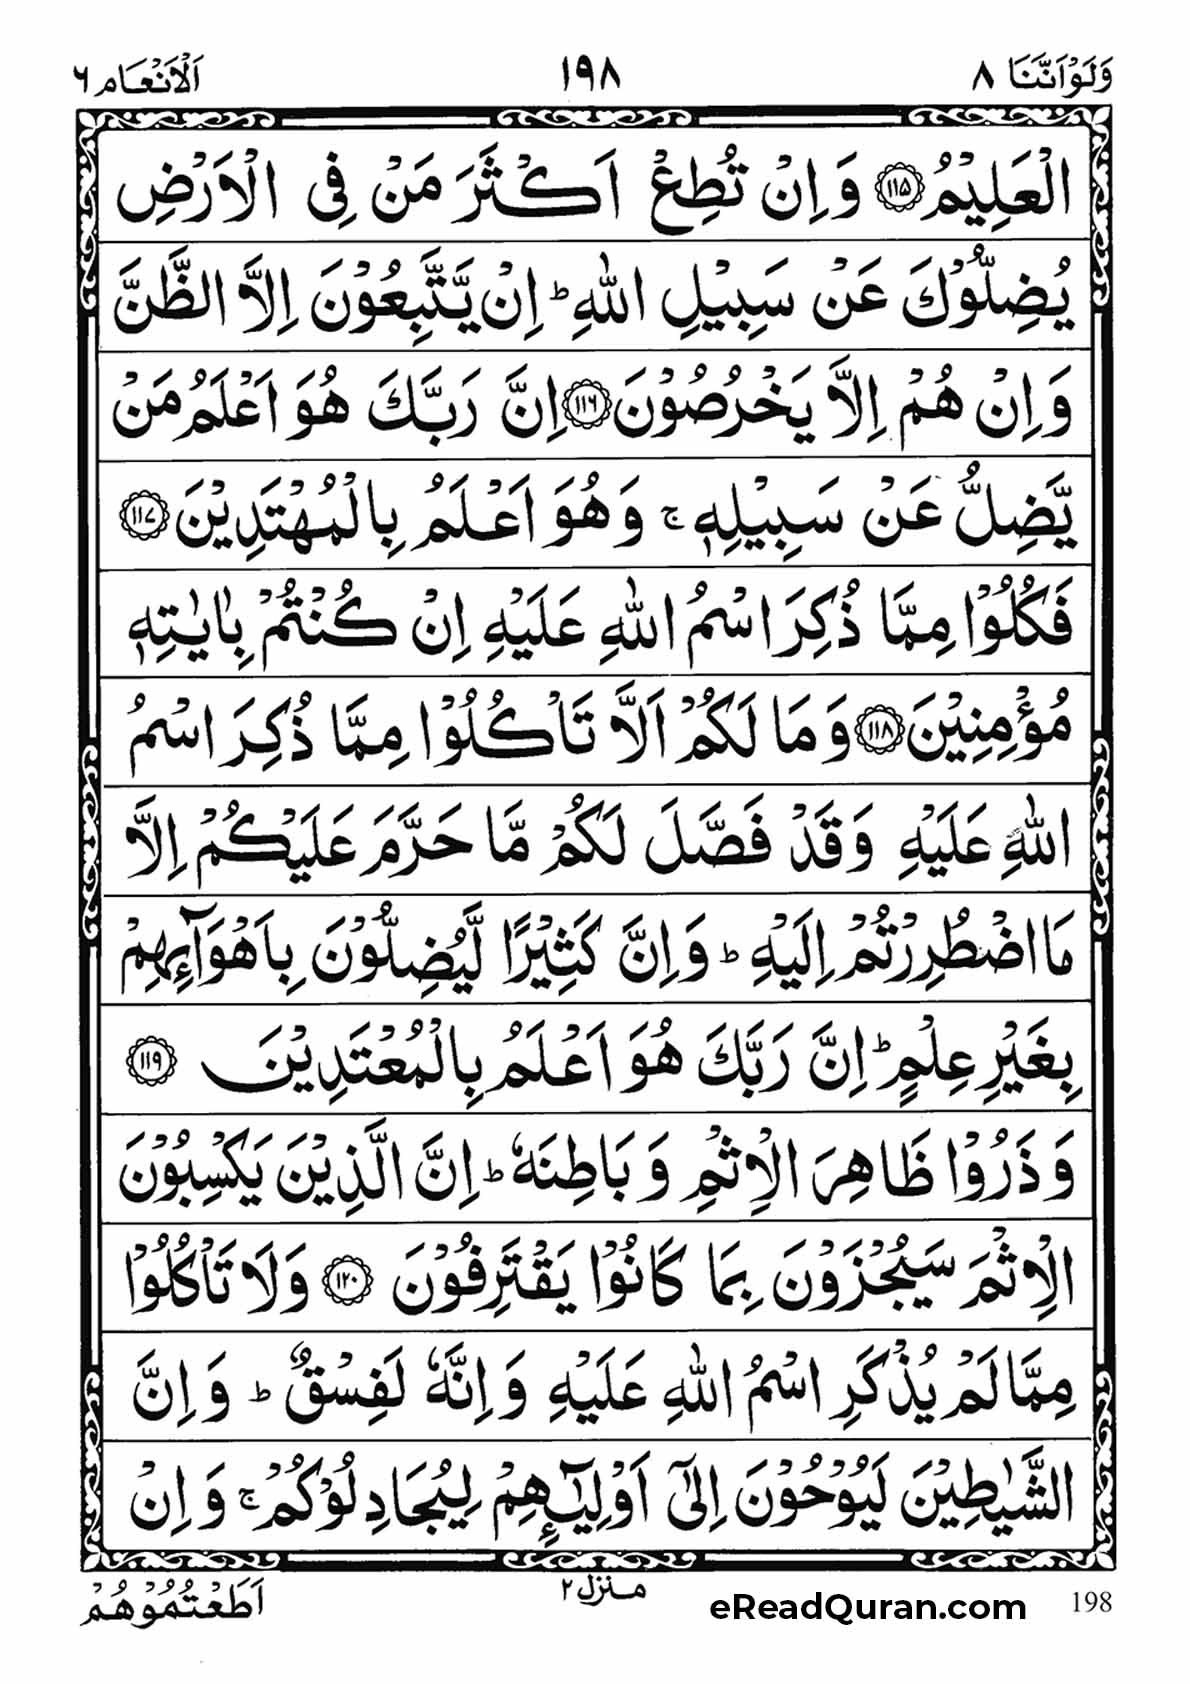 وَلَوْاَنَّنَا ٨ ١٩٨ اَلْاَنْعَام ٦
الْعَلِيْمُ ﴿١١٥﴾ وَاِنْ تُطِعْ اَكْثَرَ مَنْ فِى الْاَرْضِ
يُضِلُّوْكَ عَنْ سَبِيْلِ اللّٰهِ ؕ اِنْ يَّتَّبِعُوْنَ اِلَّا الظَّنَّ
وَاِنْ هُمْ اِلَّا يَخْرُصُوْنَ ﴿١١٦﴾ اِنَّ رَبَّكَ هُوَ اَعْلَمُ مَنْ
يَّضِلُّ عَنْ سَبِيْلِهٖ ۚ وَهُوَ اَعْلَمُ بِالْمُهْتَدِيْنَ ﴿١١٧﴾
فَكُلُوْا مِمَّا ذُكِرَ اسْمُ اللّٰهِ عَلَيْهِ اِنْ كُنْتُمْ بِاٰيٰتِهٖ
مُؤْمِنِيْنَ ﴿١١٨﴾ وَمَا لَكُمْ اَلَّا تَاْكُلُوْا مِمَّا ذُكِرَ اسْمُ
اللّٰهِ عَلَيْهِ وَقَدْ فَصَّلَ لَكُمْ مَّا حَرَّمَ عَلَيْكُمْ اِلَّا
مَا اضْطُرِرْتُمْ اِلَيْهِ ؕ وَاِنَّ كَثِيْرًا لَّيُضِلُّوْنَ بِاَهْوَآئِهِمْ
بِغَيْرِ عِلْمٍ ؕ اِنَّ رَبَّكَ هُوَ اَعْلَمُ بِالْمُعْتَدِيْنَ ﴿١١٩﴾
وَذَرُوْا ظَاهِرَ الْاِثْمِ وَبَاطِنَهٗ ؕ اِنَّ الَّذِيْنَ يَكْسِبُوْنَ
الْاِثْمَ سَيُجْزَوْنَ بِمَا كَانُوْا يَقْتَرِفُوْنَ ﴿١٢٠﴾ وَلَا تَاْكُلُوْا
مِمَّا لَمْ يُذْكَرِ اسْمُ اللّٰهِ عَلَيْهِ وَاِنَّهٗ لَفِسْقٌ ؕ وَاِنَّ
الشَّيٰطِيْنَ لَيُوْحُوْنَ اِلٰٓى اَوْلِيٰٓئِهِمْ لِيُجَادِلُوْكُمْ ۚ وَاِنْ
منزل ٢ اَطَعْتُمُوْهُمْ
eReadQuran.com 198